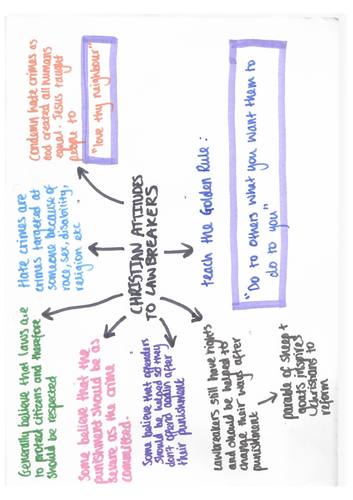 CHRISTIAN ATTITUDES
TO LAWBREAKERS
Generally believe that laws are
to protect citizens and therefore
should be respected
Hate crimes are
crimes targeted at
someone because of
race, sex, disability,
religion etc
Condemn hate crimes as
God created all humans
equal. Jesus taught
people to
"love thy neighbour"
Some believe that the
punishment should be as
severe as the crime
committed.
Some believe that offenders
should be helped so they
don't offend again after
their punishment
Lawbreakers still have rights
and should be helped to
change their ways after
punishment
parable of sheep +
goats inspires
Christians to
reform
teach the Golden Rule:
"Do to others what you want them to
do to you"